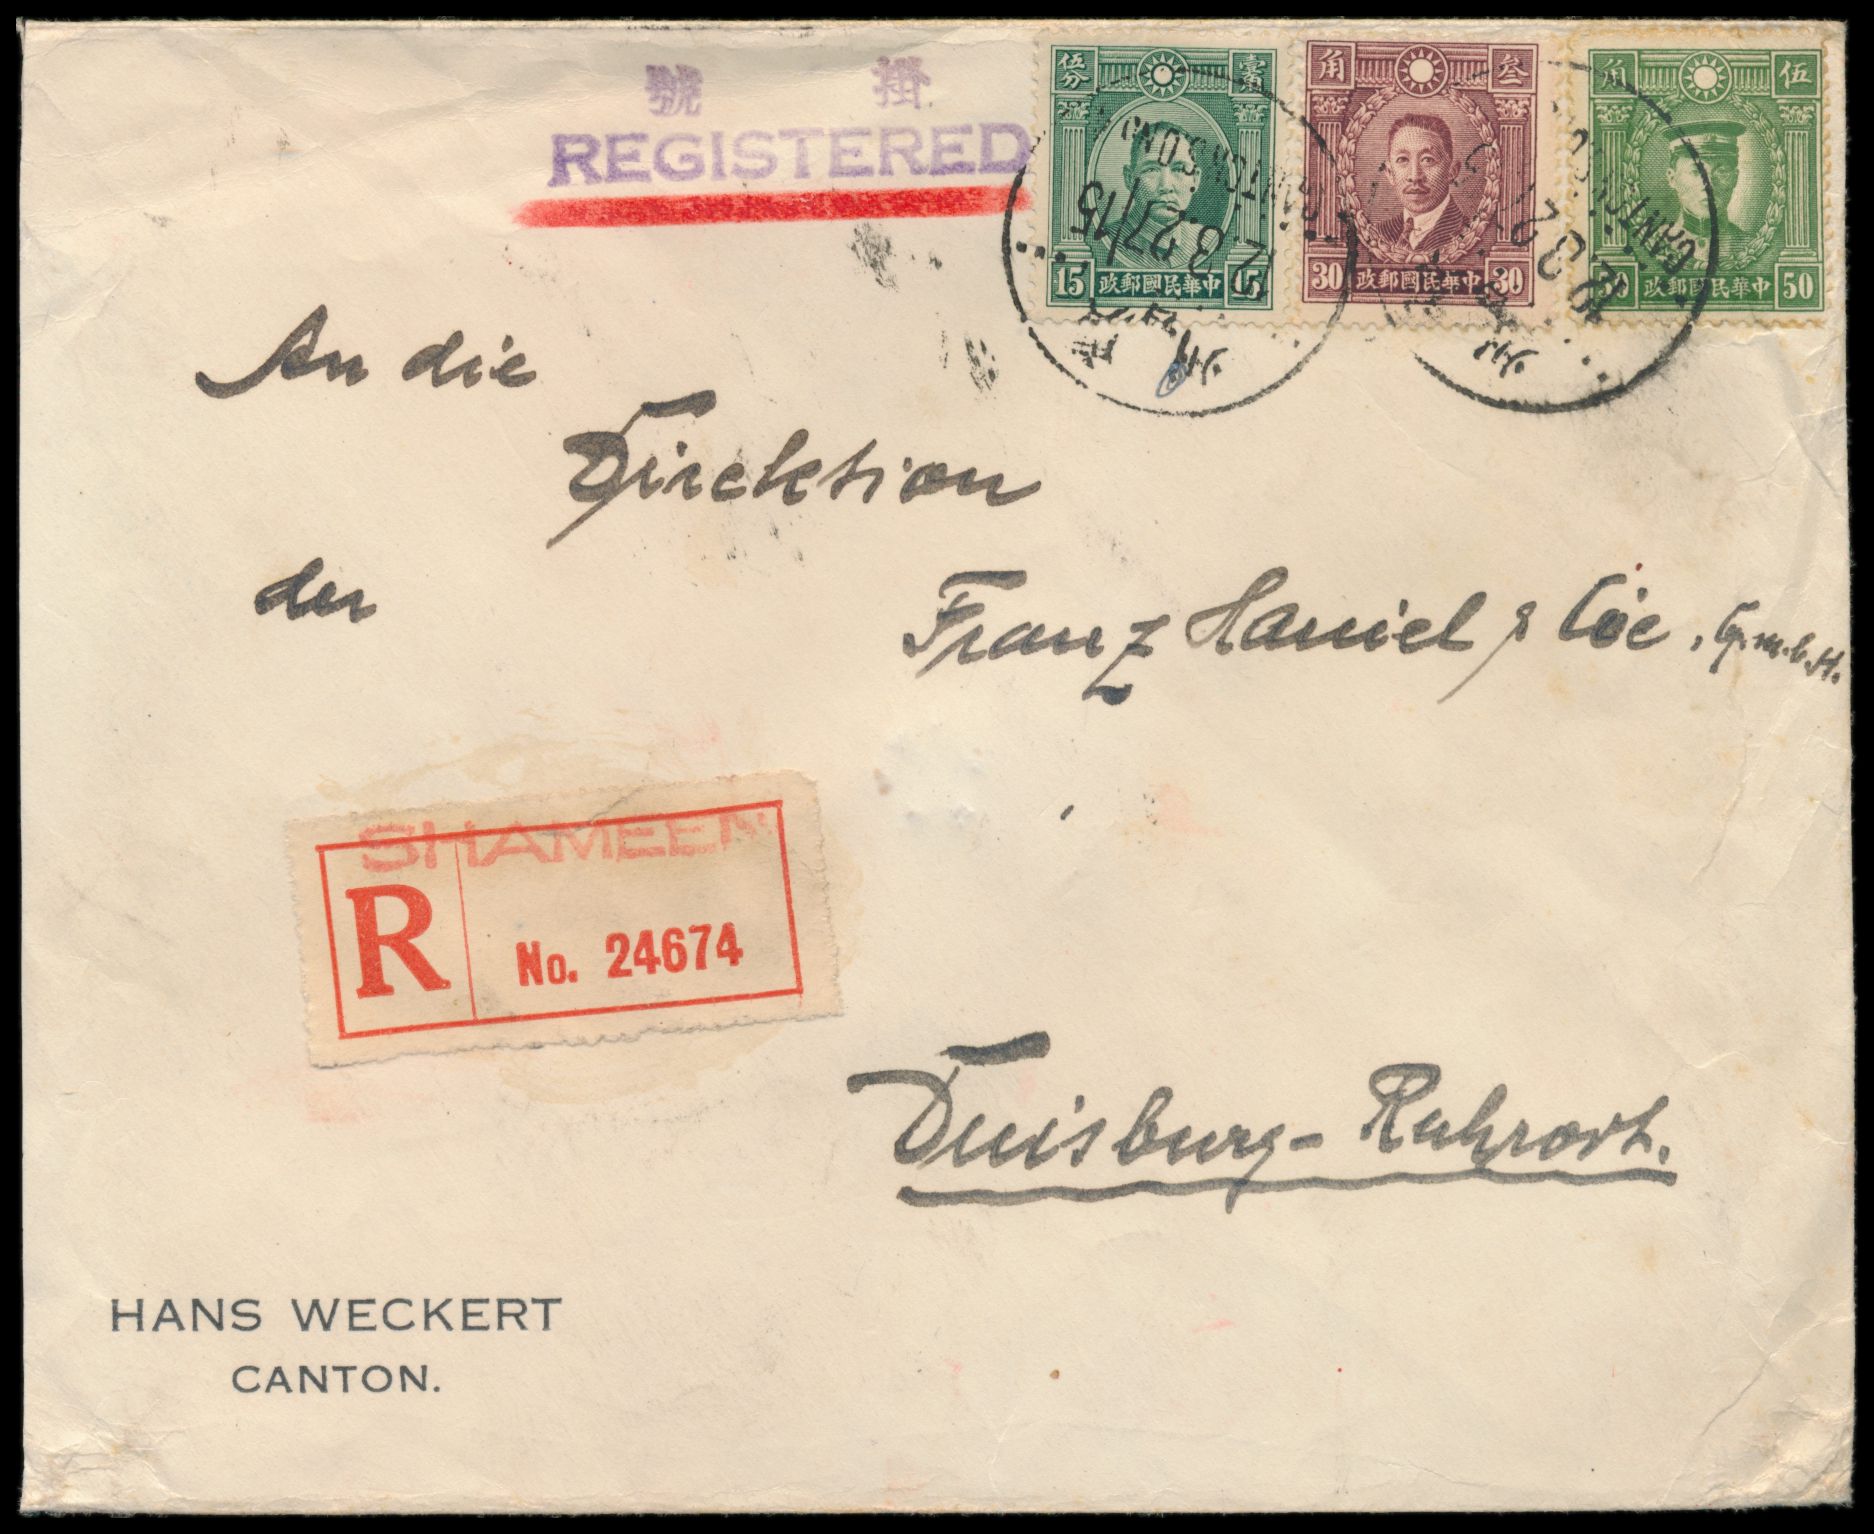 號 掛
REGISTERED
伍分 壹角
15 政郵國民華中 15
角 叁
30 政郵國民華中 30
角 伍
50 政郵國民華中 50
CANTON
12. 3 27/15
CANTON
12 3 27
州
An die
Direktion
der
Franz Haniel & Cie, G.m.b.H.
SHAMEEN
R No. 24674
Duisburg-Ruhrort.
HANS WECKERT
CANTON.